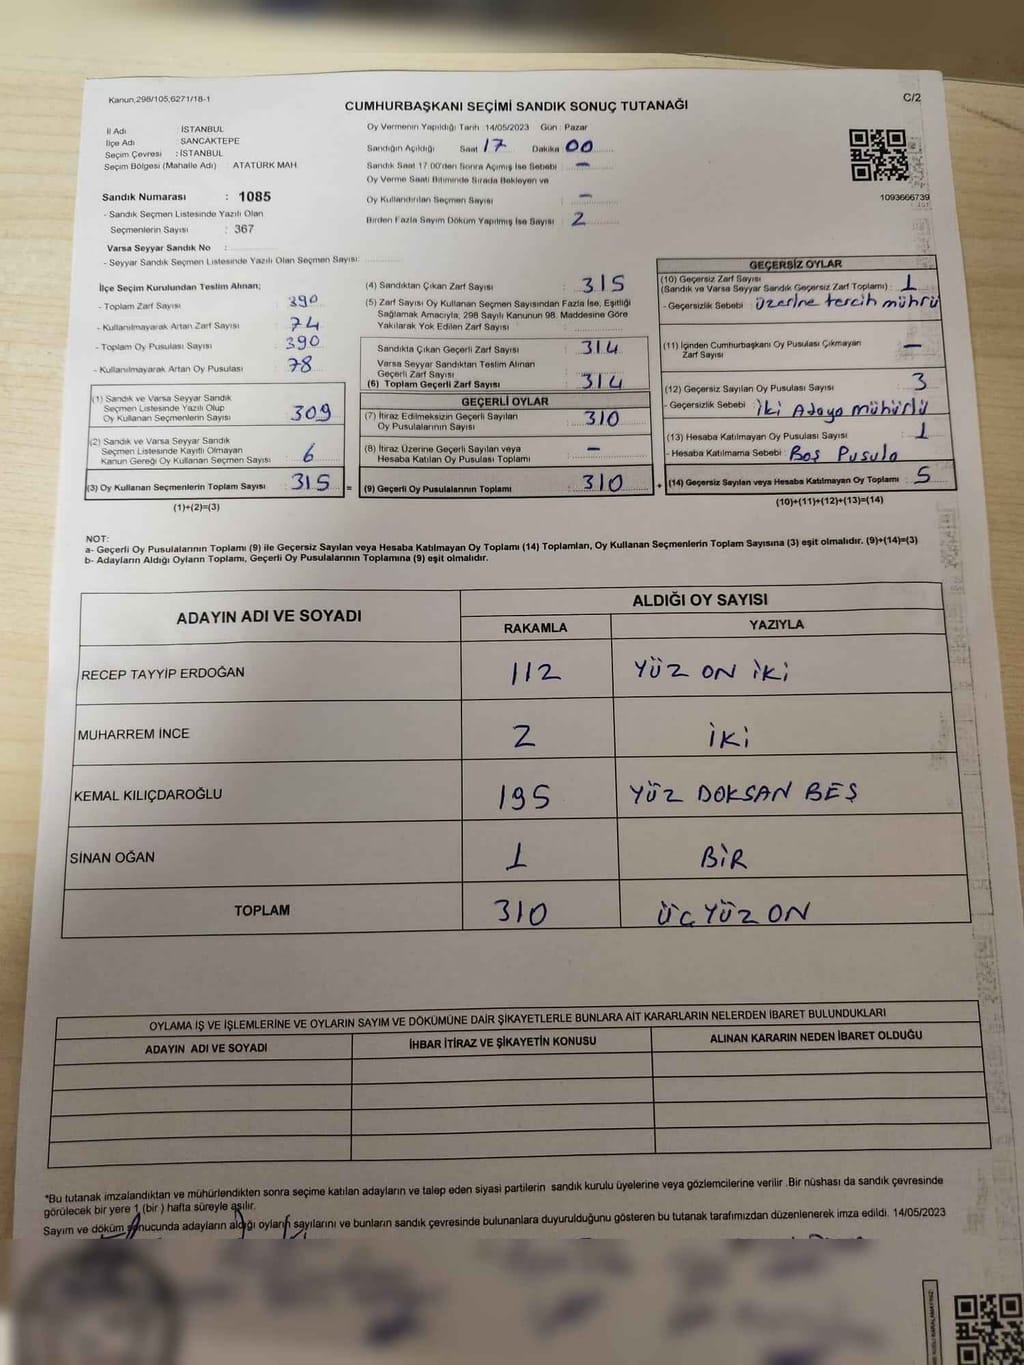 Kanun,298/105,6271/18-1
C/2
CUMHURBAŞKANI SEÇİMİ SANDIK SONUÇ TUTANAĞI
İl Adı İSTANBUL
İlçe Adı SANCAKTEPE
Seçim Çevresi : İSTANBUL
Seçim Bölgesi (Mahalle Adı) ATATÜRK MAH
Sandık Numarası : 1085
- Sandık Seçmen Listesinde Yazılı Olan
Seçmenlerin Sayısı : 367
Varsa Seyyar Sandık No :
- Seyyar Sandık Seçmen Listesinde Yazılı Olan Seçmen Sayısı:
Oy Vermenin Yapıldığı Tarih 14/05/2023 Gün : Pazar
Sandığın Açıldığı Saat 17 Dakika 00
Sandık Saat 17.00'den Sonra Açımış İse Sebebi : -
Oy Verme Saati Bitiminde Sırada Bekleyen ve
Oy Kullandırılan Seçmen Sayısı : -
Birden Fazla Sayım Döküm Yapılmış İse Sayısı : 2
1093666739
İlçe Seçim Kurulundan Teslim Alınan;
- Toplam Zarf Sayısı : 390
- Kullanılmayarak Artan Zarf Sayısı : 74
- Toplam Oy Pusulası Sayısı : 390
- Kullanılmayarak Artan Oy Pusulası : 78
(1) Sandık ve Varsa Seyyar Sandık
Seçmen Listesinde Yazılı Olup
Oy Kullanan Seçmenlerin Sayısı : 309
(2) Sandık ve Varsa Seyyar Sandık
Seçmen Listesinde Kayıtlı Olmayan
Kanun Gereği Oy Kullanan Seçmen Sayısı : 6
(3) Oy Kullanan Seçmenlerin Toplam Sayısı : 315 =
(1)+(2)=(3)
(4) Sandıktan Çıkan Zarf Sayısı : 315
(5) Zarf Sayısı Oy Kullanan Seçmen Sayısından Fazla İse, Eşitliği
Sağlamak Amacıyla, 298 Sayılı Kanunun 98. Maddesine Göre
Yakılarak Yok Edilen Zarf Sayısı :
Sandıkta Çıkan Geçerli Zarf Sayısı : 314
Varsa Seyyar Sandıktan Teslim Alınan
Geçerli Zarf Sayısı :
(6) Toplam Geçerli Zarf Sayısı : 314
GEÇERLİ OYLAR
(7) İtiraz Edilmeksizin Geçerli Sayılan
Oy Pusulalarının Sayısı : 310
(8) İtiraz Üzerine Geçerli Sayılan veya
Hesaba Katılan Oy Pusulası Toplamı : -
(9) Geçerli Oy Pusulalarının Toplamı : 310 +
GEÇERSİZ OYLAR
(10) Geçersiz Zarf Sayısı
(Sandık ve Varsa Seyyar Sandık Geçersiz Zarf Toplamı) : 1
- Geçersizlik Sebebi : üzerine tercih mührü
(11) İçinden Cumhurbaşkanı Oy Pusulası Çıkmayan
Zarf Sayısı : -
(12) Geçersiz Sayılan Oy Pusulası Sayısı : 3
- Geçersizlik Sebebi : İki Adaya Mühürlü
(13) Hesaba Katılmayan Oy Pusulası Sayısı : 1
- Hesaba Katılmama Sebebi : Boş Pusula
(14) Geçersiz Sayılan veya Hesaba Katılmayan Oy Toplamı : 5
(10)+(11)+(12)+(13)=(14)
NOT:
a- Geçerli Oy Pusulalarının Toplamı (9) ile Geçersiz Sayılan veya Hesaba Katılmayan Oy Toplamı (14) Toplamları, Oy Kullanan Seçmenlerin Toplam Sayısına (3) eşit olmalıdır. (9)+(14)=(3)
b- Adayların Aldığı Oyların Toplamı, Geçerli Oy Pusulalarının Toplamına (9) eşit olmalıdır.
ADAYIN ADI VE SOYADI
ALDIĞI OY SAYISI
RAKAMLA YAZIYLA
RECEP TAYYİP ERDOĞAN 112 YÜZ ON İKİ
MUHARREM İNCE 2 İKİ
KEMAL KILIÇDAROĞLU 195 YÜZ DOKSAN BEŞ
SİNAN OĞAN 1 BİR
TOPLAM 310 ÜÇYÜZ ON
OYLAMA İŞ VE İŞLEMLERİNE VE OYLARIN SAYIM VE DÖKÜMÜNE DAİR ŞİKAYETLERLE BUNLARA AİT KARARLARIN NELERDEN İBARET BULUNDUKLARI
ADAYIN ADI VE SOYADI İHBAR İTİRAZ VE ŞİKAYETİN KONUSU ALINAN KARARIN NEDEN İBARET OLDUĞU
*Bu tutanak imzalandıktan ve mühürlendikten sonra seçime katılan adayların ve talep eden siyasi partilerin sandık kurulu üyelerine veya gözlemcilerine verilir .Bir nüshası da sandık çevresinde
görülecek bir yere 1 (bir ) hafta süreyle asılır.
Sayım ve döküm sonucunda adayların aldığı oyların sayılarını ve bunların sandık çevresinde bulunanlara duyurulduğunu gösteren bu tutanak tarafımızdan düzenlenerek imza edildi. 14/05/2023